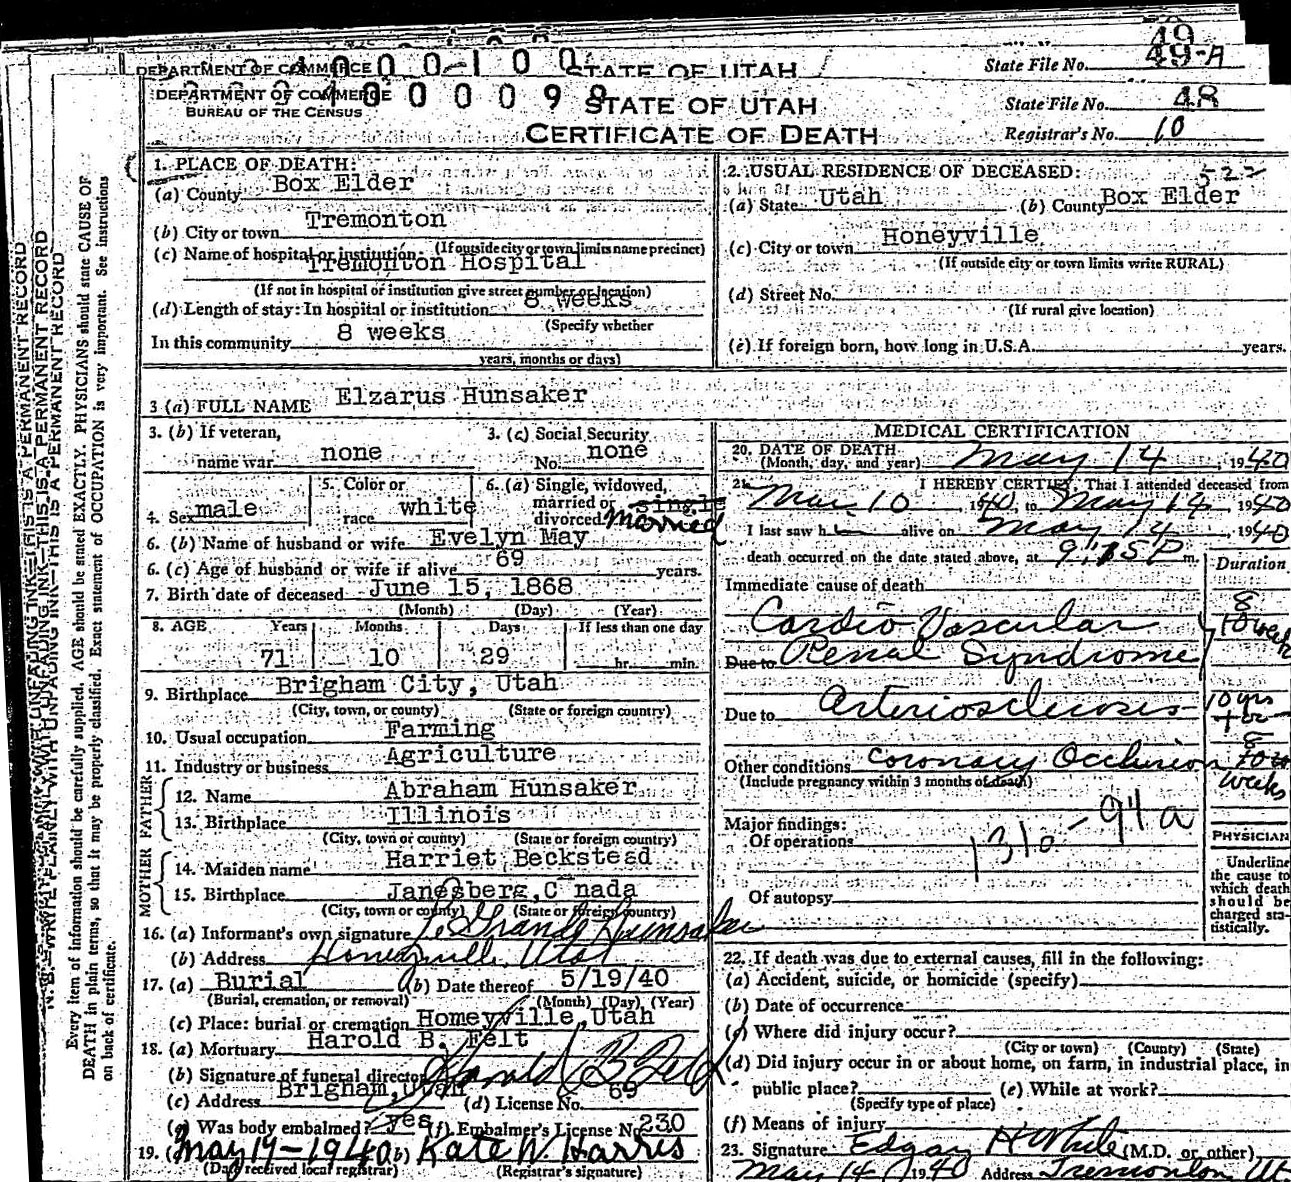 49
DEPARTMENT OF COMMERCE STATE OF UTAH State File No. 49-A
DEPARTMENT OF COMMERCE STATE OF UTAH State File No. 48
BUREAU OF THE CENSUS
CERTIFICATE OF DEATH Registrar's No. 10
1. PLACE OF DEATH:
(a) County Box Elder
(b) City or town Tremonton
(If outside city or town limits name precinct)
(c) Name of hospital or institution: Tremonton Hospital
(If not in hospital or institution give street number or location)
(d) Length of stay: In hospital or institution 8 weeks
(Specify whether
In this community 8 weeks
years, months or days)
2. USUAL RESIDENCE OF DECEASED: 522
(a) State Utah (b) County Box Elder
(c) City or town Honeyville
(If outside city or town limits write RURAL)
(d) Street No.
(If rural give location)
(e) If foreign born, how long in U.S.A. years.
3 (a) FULL NAME Elzarus Hunsaker
3. (b) If veteran, name war none
3. (c) Social Security No. none
4. Sex male
5. Color or race white
6. (a) Single, widowed, married or divorced single married
6. (b) Name of husband or wife Evelyn May
6. (c) Age of husband or wife if alive 69 years.
7. Birth date of deceased June 15, 1868
(Month) (Day) (Year)
8. AGE Years Months Days If less than one day
71 10 29 hr. min.
9. Birthplace Brigham City, Utah
(City, town, or county) (State or foreign country)
10. Usual occupation Farming
11. Industry or business Agriculture
FATHER
12. Name Abraham Hunsaker
13. Birthplace Illinois
(City, town or county) (State or foreign country)
MOTHER
14. Maiden name Harriet Beckstead
15. Birthplace Janesberg, C nada
(City, town or county) (State or foreign country)
16. (a) Informant's own signature Le Grande Hunsaker
(b) Address Honeyville, Utah
17. (a) Burial (b) Date thereof 5/19/40
(Burial, cremation, or removal) (Month) (Day) (Year)
(c) Place: burial or cremation Homeyville, Utah
18. (a) Mortuary Harold B. Felt
(b) Signature of funeral director Harold B Felt
(c) Address Brigham, Utah (d) License No. 69
(e) Was body embalmed? yes (f) Embalmer's License No. 230
19. (a) May 19-1940 (b) Kate W. Harris
(Day received local registrar) (Registrar's signature)
MEDICAL CERTIFICATION
20. DATE OF DEATH
(Month, day, and year) May 14, 1940
21. I HEREBY CERTIFY, That I attended deceased from
Mar 10, 1940, to May 14, 1940
I last saw h alive on May 14, 1940
death occurred on the date stated above, at 9:15 P m.
Duration
Immediate cause of death
Cardio Vascular 8
10 weeks
Due to Renal Syndrome
Due to Arteriosclerosis 10 yrs
+ or -
Other conditions Coronary Occlusion 8 to 10 weeks
(Include pregnancy within 3 months of death)
Major findings:
Of operations
131a - 94a
Of autopsy
PHYSICIAN
Underline
the cause to
which death
should be
charged sta-
tistically.
22. If death was due to external causes, fill in the following:
(a) Accident, suicide, or homicide (specify)
(b) Date of occurrence
(c) Where did injury occur?
(City or town) (County) (State)
(d) Did injury occur in or about home, on farm, in industrial place, in
public place? (e) While at work?
(Specify type of place)
(f) Means of injury
23. Signature Edgar H White (M.D. or other)
May 14 1940 Address Tremonton, Ut.
N. B.—WRITE PLAINLY, WITH UNFADING INK—THIS IS A PERMANENT RECORD
Every item of information should be carefully supplied. AGE should be stated EXACTLY. PHYSICIANS should state CAUSE OF
DEATH in plain terms, so that it may be properly classified. Exact statement of OCCUPATION is very important. See instructions
on back of certificate.